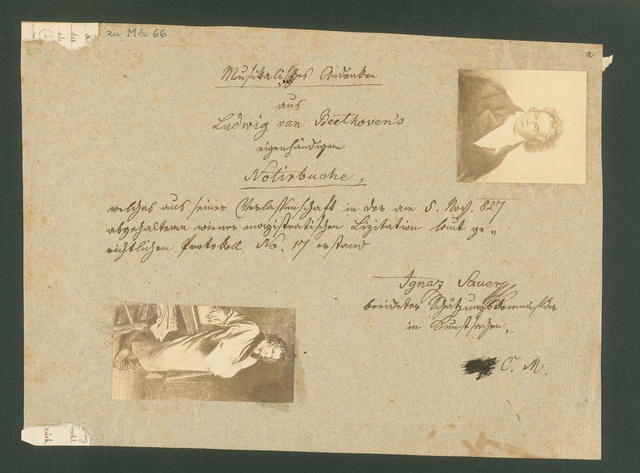 zu Mh 66
a
Musikalisches Andenken
aus
Ludwig van Beethoven's
eigenhändigem
Notirbuche,
welches aus seiner Verlassenschaft in der am 5. Nov. 827
abgehaltenen wiener magistratischen Lizitation laut ge-
richtlichem Protokoll No. 17 erstand
Ignaz Sauer
beeideter Schätzungskommissär
in Kunstsachen,
C. M.